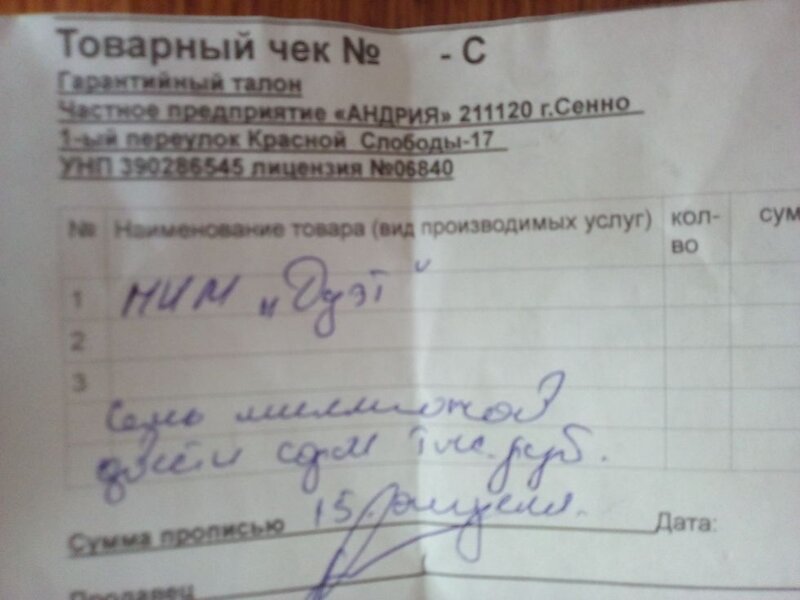 Товарный чек № - С
Гарантийный талон
Частное предприятие «АНДРИЯ» 211120 г.Сенно
1-ый переулок Красной Слободы-17
УНП 390286545 лицензия №06840
№ Наименование товара (вид производимых услуг) кол-во сум
1 НИМ „Дуэт"
2
3
Семь миллионов
двести сорок тыс. руб.
Сумма прописью 15 апреля. Дата:
Продавец